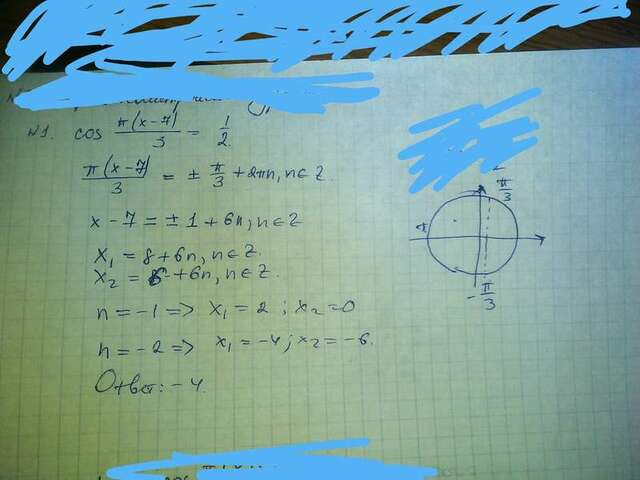 №1. cos π(x-7)/3 = 1/2.
π(x-7)/3 = ± π/3 + 2πn, n∈Z.
x-7 = ±1 + 6n, n∈Z
x₁ = 8+6n, n∈Z.
x₂ = 6+6n, n∈Z.
n = -1 => x₁ = 2; x₂ = 0
n = -2 => x₁ = -4; x₂ = -6.
Ответ: -4.
π/3
π
-π/3